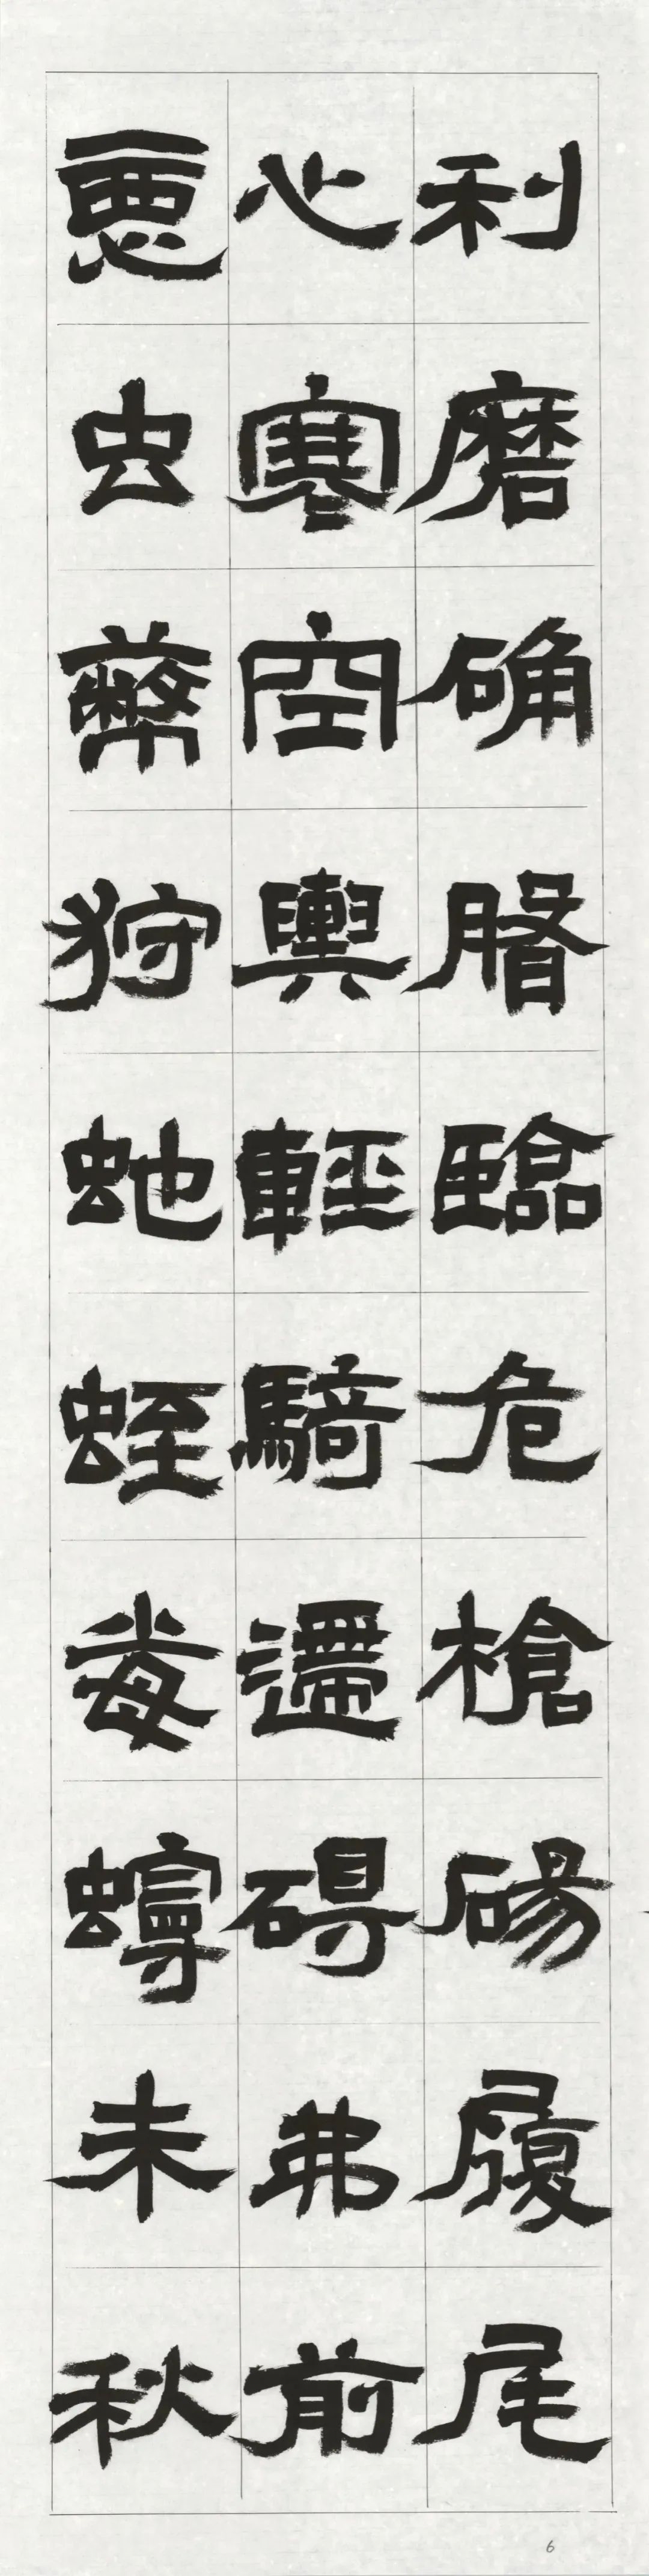 利磨确磐臨危槍碭履尾
心寒空輿輕騎遰碍弗前
惡虫幣狩蛇蛭毒蟃未秋
6